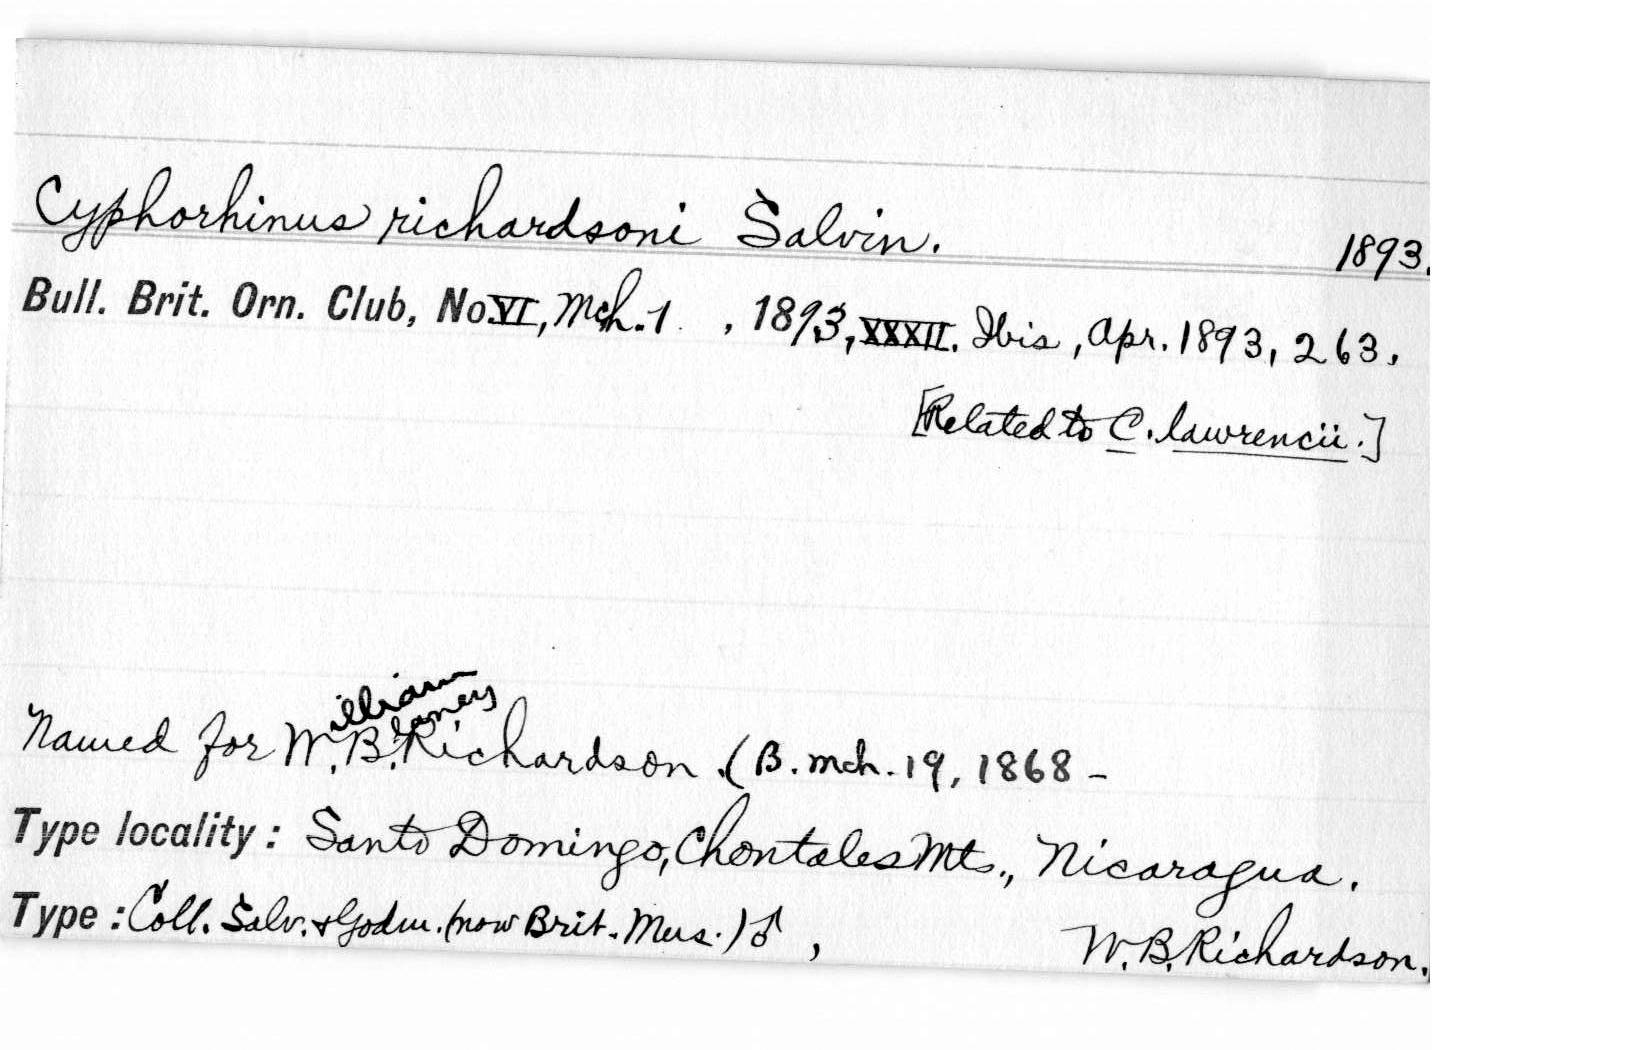 Cyphorhinus richardsoni Salvin. 1893.
Bull. Brit. Orn. Club, No. VI, Mch. 1, 1893, XXXII. Ibis, Apr. 1893, 263.
[Related to C. lawrencii.]
illiam
laney
Named for W. B. Richardson. (B. mch. 19, 1868 –
Type locality: Santo Domingo, Chontales Mts., Nicaragua.
Type: Coll. Salv. & Godm. (now Brit. Mus.) ♂, W. B. Richardson.